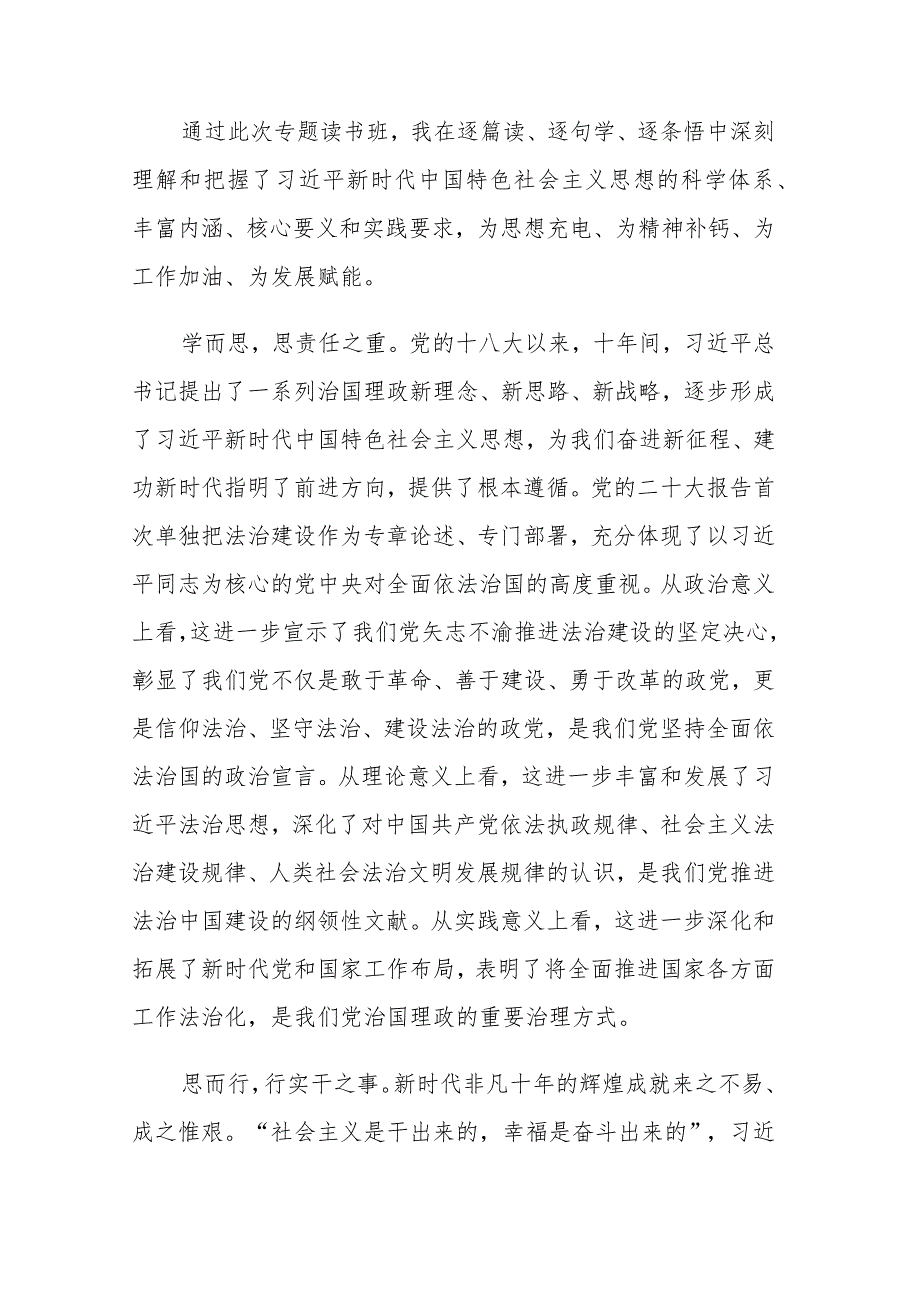 通过此次专题读书班，我在逐篇读、逐句学、逐条悟中深刻
理解和把握了习近平新时代中国特色社会主义思想的科学体系、
丰富内涵、核心要义和实践要求，为思想充电、为精神补钙、为
工作加油、为发展赋能。
学而思，思责任之重。党的十八大以来，十年间，习近平总
书记提出了一系列治国理政新理念、新思路、新战略，逐步形成
了习近平新时代中国特色社会主义思想，为我们奋进新征程、建
功新时代指明了前进方向，提供了根本遵循。党的二十大报告首
次单独把法治建设作为专章论述、专门部署，充分体现了以习近
平同志为核心的党中央对全面依法治国的高度重视。从政治意义
上看，这进一步宣示了我们党矢志不渝推进法治建设的坚定决心，
彰显了我们党不仅是敢于革命、善于建设、勇于改革的政党，更
是信仰法治、坚守法治、建设法治的政党，是我们党坚持全面依
法治国的政治宣言。从理论意义上看，这进一步丰富和发展了习
近平法治思想，深化了对中国共产党依法执政规律、社会主义法
治建设规律、人类社会法治文明发展规律的认识，是我们党推进
法治中国建设的纲领性文献。从实践意义上看，这进一步深化和
拓展了新时代党和国家工作布局，表明了将全面推进国家各方面
工作法治化，是我们党治国理政的重要治理方式。
思而行，行实干之事。新时代非凡十年的辉煌成就来之不易、
成之惟艰。“社会主义是干出来的，幸福是奋斗出来的”，习近